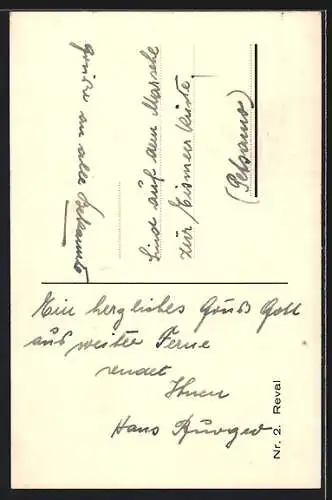 Ein herzliches Grüß Gott
aus weiter Ferne
sendet
Ihnen
Hans Burger
Grüße an alle Bekannte
Sind auf dem Marsche
zur Eismeerküste
(Petsamo)
Nr. 2. Reval